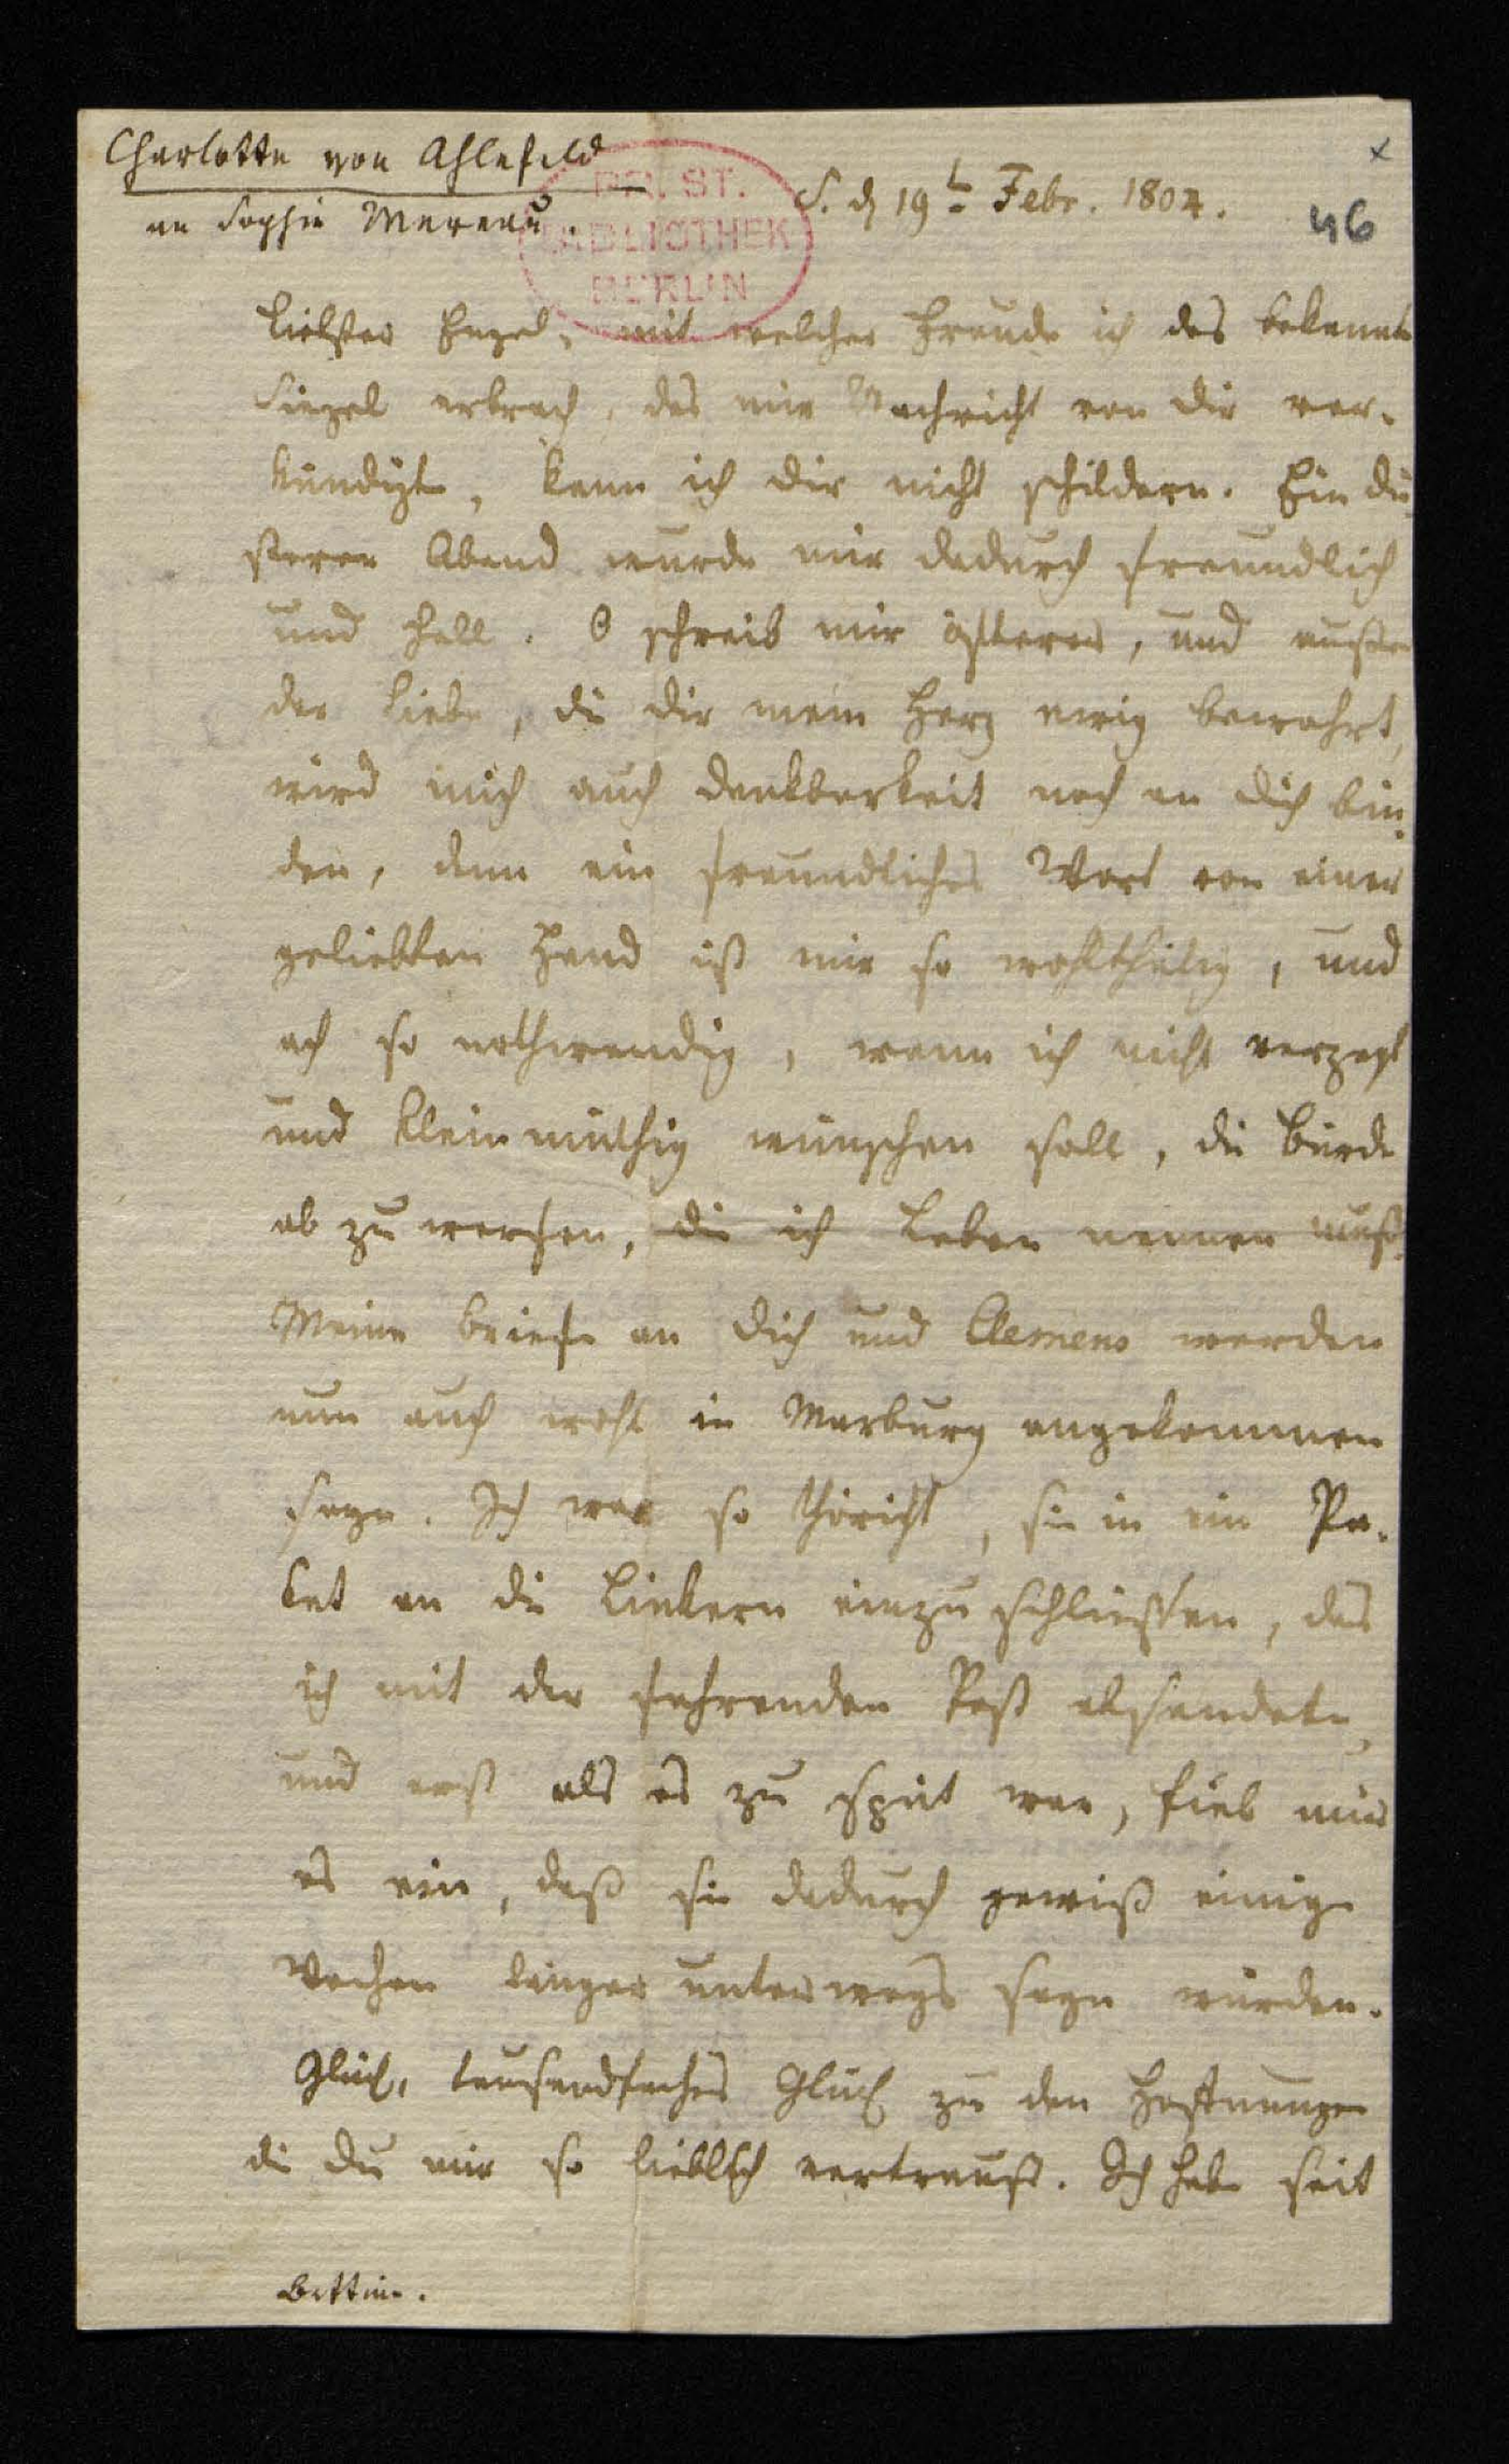 Charlotte von Ahlefeld
an Sophie Mereau.
PR. ST.
BIBLIOTHEK
BERLIN
S. d 19t Febr. 1804.
46
Liebster Engel, mit welcher Freude ich das bekannte
Siegel erbrach, das mir Nachricht von dir ver-
kündigte, kann ich dir nicht schildern. Ein dü-
sterer Abend wurde mir dadurch freundlich
und hell. O schreib mir öfterer, und außer
der Liebe, die dir mein Herz ewig bewahrt,
wird mich auch Dankbarkeit noch an dich bin-
den, denn ein freundliches Wort von einer
geliebten Hand ist mir so wohlthätig, und
ach so nothwendig, wenn ich nicht verzagt
und kleinmüthig wünschen soll, die Bürde
ab zu werfen, die ich Leben nennen muß.
Meine Briefe an dich und Clemens werden
nun auch wohl in Marburg angekommen
seyn. Ich war so thöricht, sie in ein Pa-
ket an die Linkern einzuschließen, das
ich mit der fahrenden Post absandte,
und erst als es zu spät war, fiel mir
es ein, daß sie dadurch gewiß einige
Wochen länger unterwegs seyn würden.
Glück, tausendfaches Glück zu den Hoffnungen
die du mir so lieblich vertraust. Ich habe seit
Bettine.